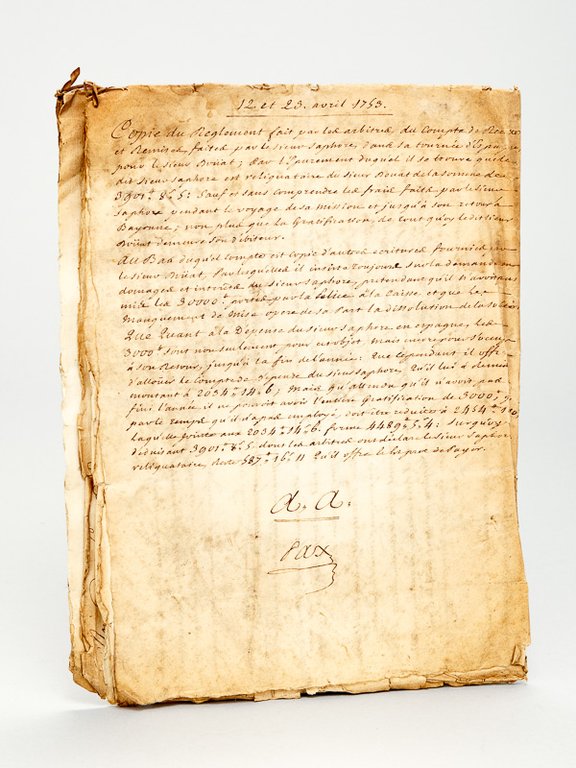 12. et 23. avril 1753.
Copie du Reglement fait par les arbitres, du Compte de
et Remises faites par le sieur Saphore, dans sa tournée d'Espagne
pour le sieur Boüat; par l'apurement duquel il se trouve que le
dit sieur Saphore est reliquataire du sieur Bouat de la somme de
3901.# 8.s 5: Sauf et sans comprendre les fraix faits par le sieur
Saphore pendant le voyage de sa mission et jusqu'à son retour à
Bayonne; non plus que la Gratification, de tout quoy le dit sieur
Boüat demeure son debiteur.
Au Bas duquel Compte est copie d'autres ecritures fournies par
le sieur Boüat, par lesquelles il insiste toujours sur la demande en
domages et interets du sieur Saphore, pretendant qu'il n'avoit pas
mis les 30000.# portés par la Police à la Caisse et que le
Manquement de Mise opere de sa part la dissolution de la societé
Que Quant à la Depense du sieur Saphore en espagne, les
3000.# sont non seulement pour cet objet, mais encore pour
à son Retour, jusqu'à la fin de l'année: Que cependant il offre
d'allouer le Compte de depense du sieur Saphore, qu'il lui a
montant à 2034.# 14.s 6; Mais qu'attendu qu'il n'avoit pas
fini l'année, il ne pouvoit avoir l'entiere Gratification de 3000.#,
par le temps qu'il n'a pas employé, doit être reduite à 2454.#
Laquelle jointe aux 2034.# 14.s 6. forme 4489.# 5.s 4: Surquoy
deduisant 3901.# 8.s 5 dont les arbitres ont declaré le sieur Saphore
reliquataire, Reste 587.# 16.s 11 qu'il offre de payer.
A. A:
Pax